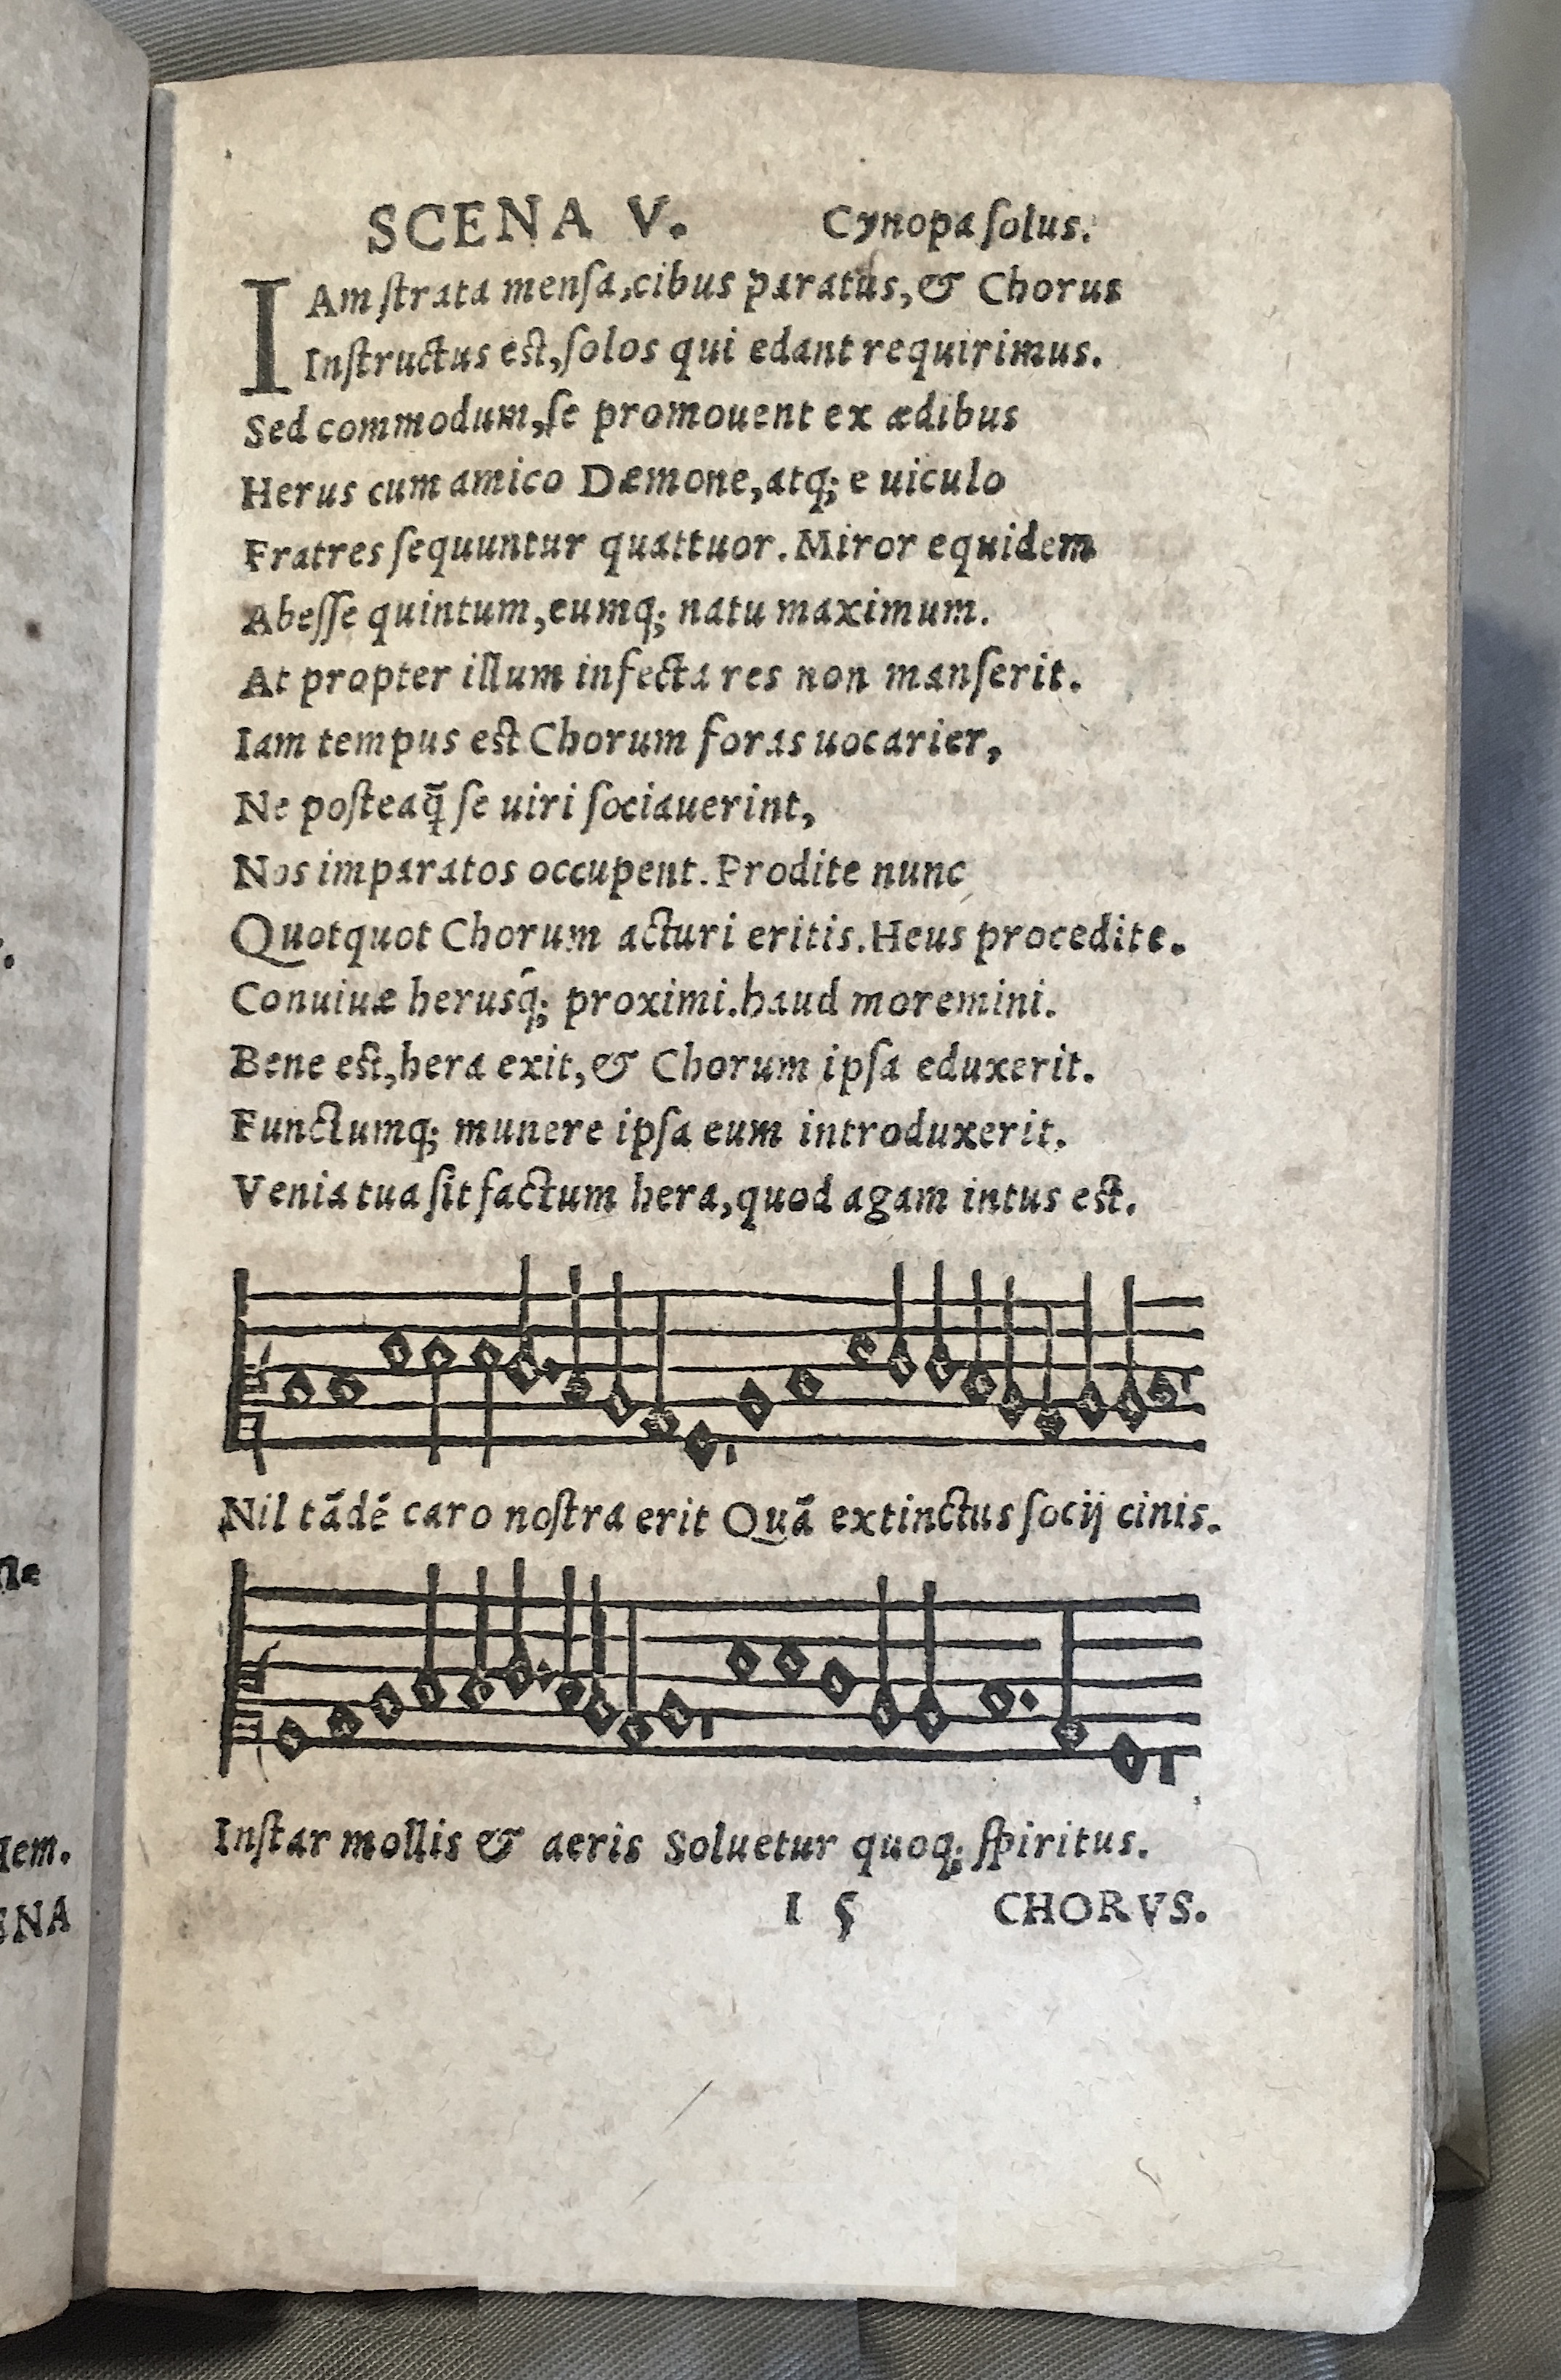 SCENA V. Cynopa ſolus.
IAm ſtrata menſa, cibus paratus, & Chorus
Inſtructus eſt, ſolos qui edant requirimus.
Sed commodum, ſe promouent ex ædibus
Herus cum amico Dæmone, atq; e uiculo
Fratres ſequuntur quattuor. Miror equidem
Abeſſe quintum, eumq; natu maximum.
At propter illum infecta res non manſerit.
Iam tempus eſt Chorum foras uocarier,
Ne poſteaq̃ ſe uiri ſociauerint,
Nos imparatos occupent. Prodite nunc
Quotquot Chorum acturi eritis. Heus procedite.
Conuiuæ herusq́; proximi. haud moremini.
Bene eſt, hera exit, & Chorum ipſa eduxerit.
Functumq; munere ipſa eum introduxerit.
Venia tua ſit factum hera, quod agam intus eſt.
Nil tãdẽ caro noſtra erit Quã extinctus ſocij cinis.
Inſtar mollis & aeris Soluetur quoq; ſpiritus.
I 5 CHORVS.
qem.
ENA